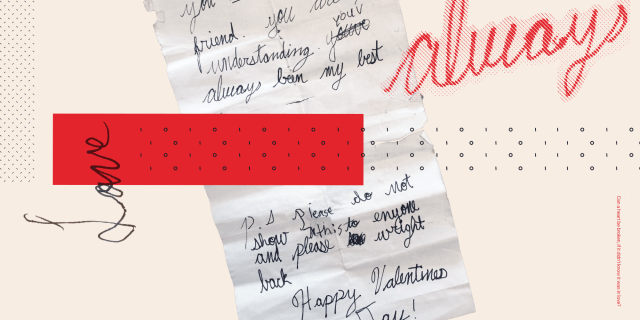 you are
friend. you're
understanding. you've
always been my best
always
Love
P.S Please do not
show this to enyone
and please wright
back
Happy Valentines
Day!
Can a heart be broken, if it didn't know it was in love?